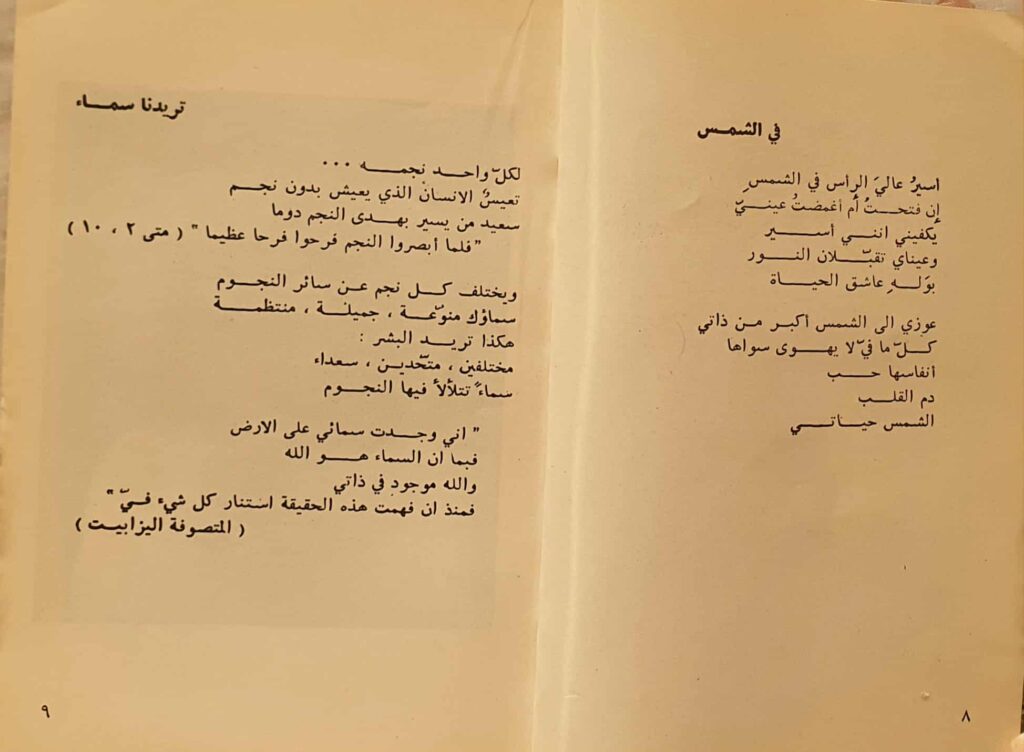 في الشمس
أسيرُ عاليَ الرأس في الشمسِ
إن فتحتُ أم أغمضتُ عينيّ
يكفيني انني أسير
وعيناي تقبّلان النور
بوَلهِ عاشق الحياة
عوزي الى الشمس أكبر من ذاتي
كلّ ما فيّ لا يهوى سواها
أنفاسها حب
دم القلب
الشمس حياتي
٨
تريدنا سماء
لكلّ واحد نجمه ...
تعيسٌ الانسان الذي يعيش بدون نجم
سعيد من يسير بهدى النجم دوما
"فلما أبصروا النجم فرحوا فرحا عظيما" ( متى ٢ ، ١٠ )
ويختلف كل نجم عن سائر النجوم
سماؤك منوّعة ، جميلة ، منتظمة
هكذا تريد البشر :
مختلفين ، متّحدين ، سعداء
سماءً تتلألأ فيها النجوم
" اني وجدت سمائي على الارض
فبما ان السماء هو الله
والله موجود في ذاتي
فمنذ ان فهمت هذه الحقيقة استنار كل شيء فيّ "
( المتصوفة اليزابيت )
٩